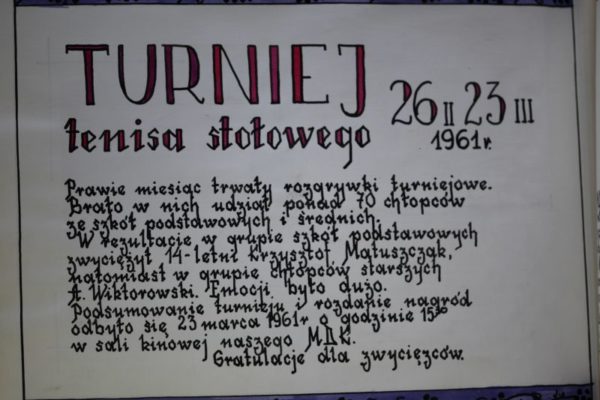 TURNIEJ
tenisa stołowego
26 II 23 III
1961r.
Prawie miesiąc trwały rozgrywki turniejowe.
Brało w nich udział ponad 70 chłopców
ze szkół podstawowych i średnich.
W rezultacie w grupie szkół podstawowych
zwyciężył 14-letni Krzysztof Matuszczak,
natomiast w grupie chłopców starszych
A. Wiktorowski. Emocji było dużo.
Podsumowanie turnieju i rozdanie nagród
odbyło się 23 marca 1961r o godzinie 15³⁰
w sali kinowej naszego MDK.
Gratulacje dla zwycięzców.